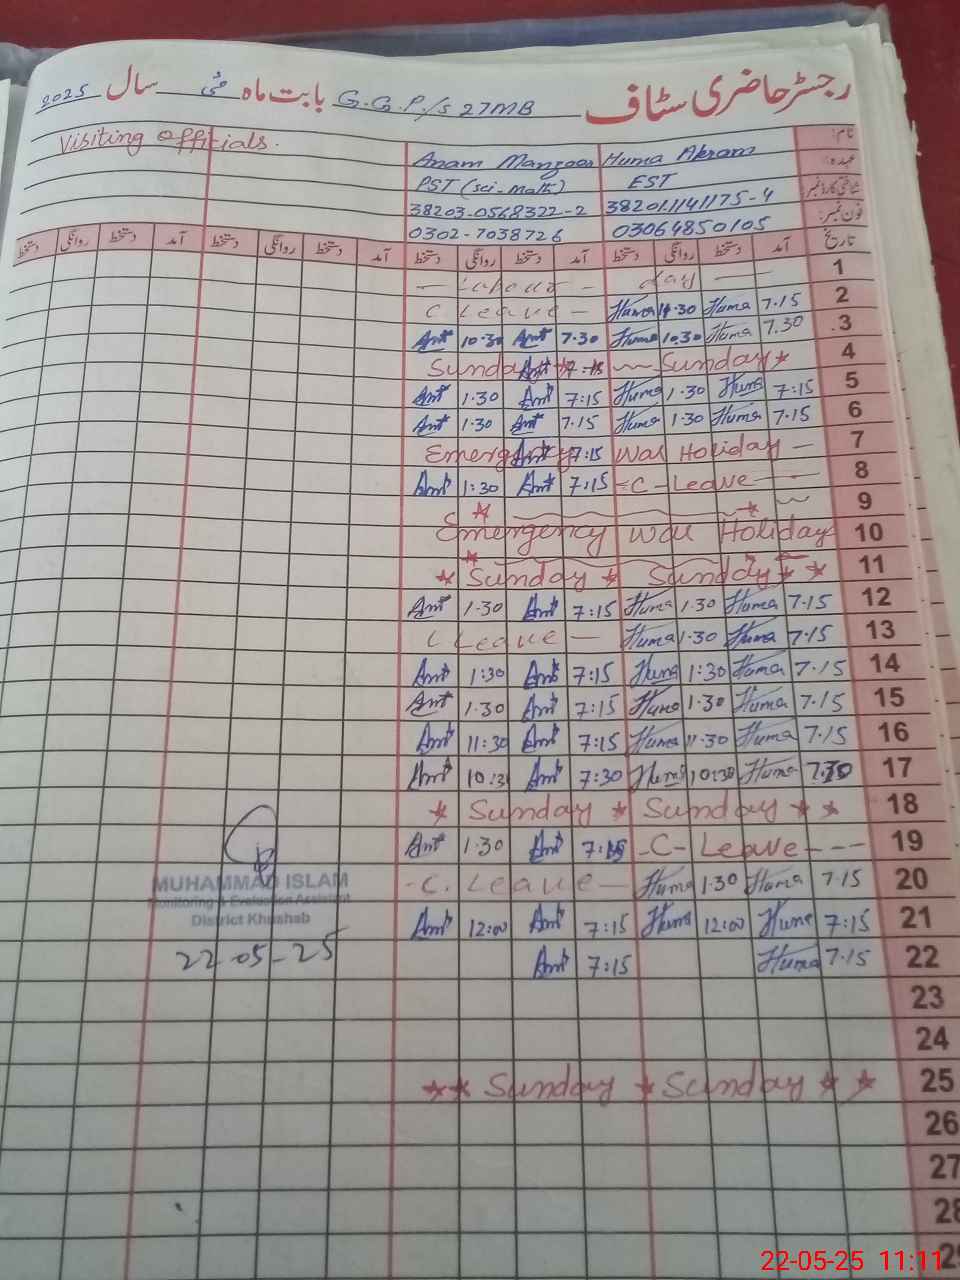 رجسٹر حاضری سٹاف G.G.P/s 27MB بابت ماہ مئی سال 2025
Visiting Officials.
نام:
Anam Manzoor Huma Akram
عہدہ:
PST (Sci-Math) EST
شناختی کارڈ نمبر
38203-0568322-2 382011141175-4
فون نمبر:
0302-7038726 03064850105
تاریخ آمد دستخط روانگی دستخط آمد دستخط روانگی دستخط آمد دستخط روانگی دستخط آمد دستخط روانگی دستخط
1 — Labour — day —
2 C Leave — Huma 11.30 Huma 7.15
3 Ant 10.30 Ant 7.30 Huma 10.30 Huma 7.30
4 Sunday Ant 7:15 Sunday
5 Ant 1.30 Ant 7:15 Huma 1.30 Huma 7:15
6 Ant 1.30 Ant 7.15 Huma 1.30 Huma 7.15
7 Emergency Ant 7:15 War Holiday —
8 Ant 1:30 Ant 7:15 -C-Leave
9
10 Emergency War Holiday
11 Sunday Sunday
12 Ant 1.30 Ant 7:15 Huma 1.30 Huma 7.15
13 C Leave — Huma 1.30 Huma 7.15
14 Ant 1:30 Ant 7:15 Huma 1:30 Huma 7.15
15 Ant 1.30 Ant 7:15 Huma 1.30 Huma 7.15
16 Ant 11:30 Ant 7:15 Huma 11.30 Huma 7.15
17 Ant 10:30 Ant 7:30 Huma 10:30 Huma 7.30
18 Sunday Sunday
19 Ant 1.30 Ant 7:15 -C- Leave ---
20 -C. Leave — Huma 1.30 Huma 7.15
21 Ant 12:00 Ant 7:15 Huma 12:00 Huma 7:15
22 Ant 7:15 Huma 7.15
23
24
25 Sunday Sunday
26
27
28
29
MUHAMMAD ISLAM
Monitoring & Evaluation Assistant
District Khushab
22-05-25
22-05-25 11:11